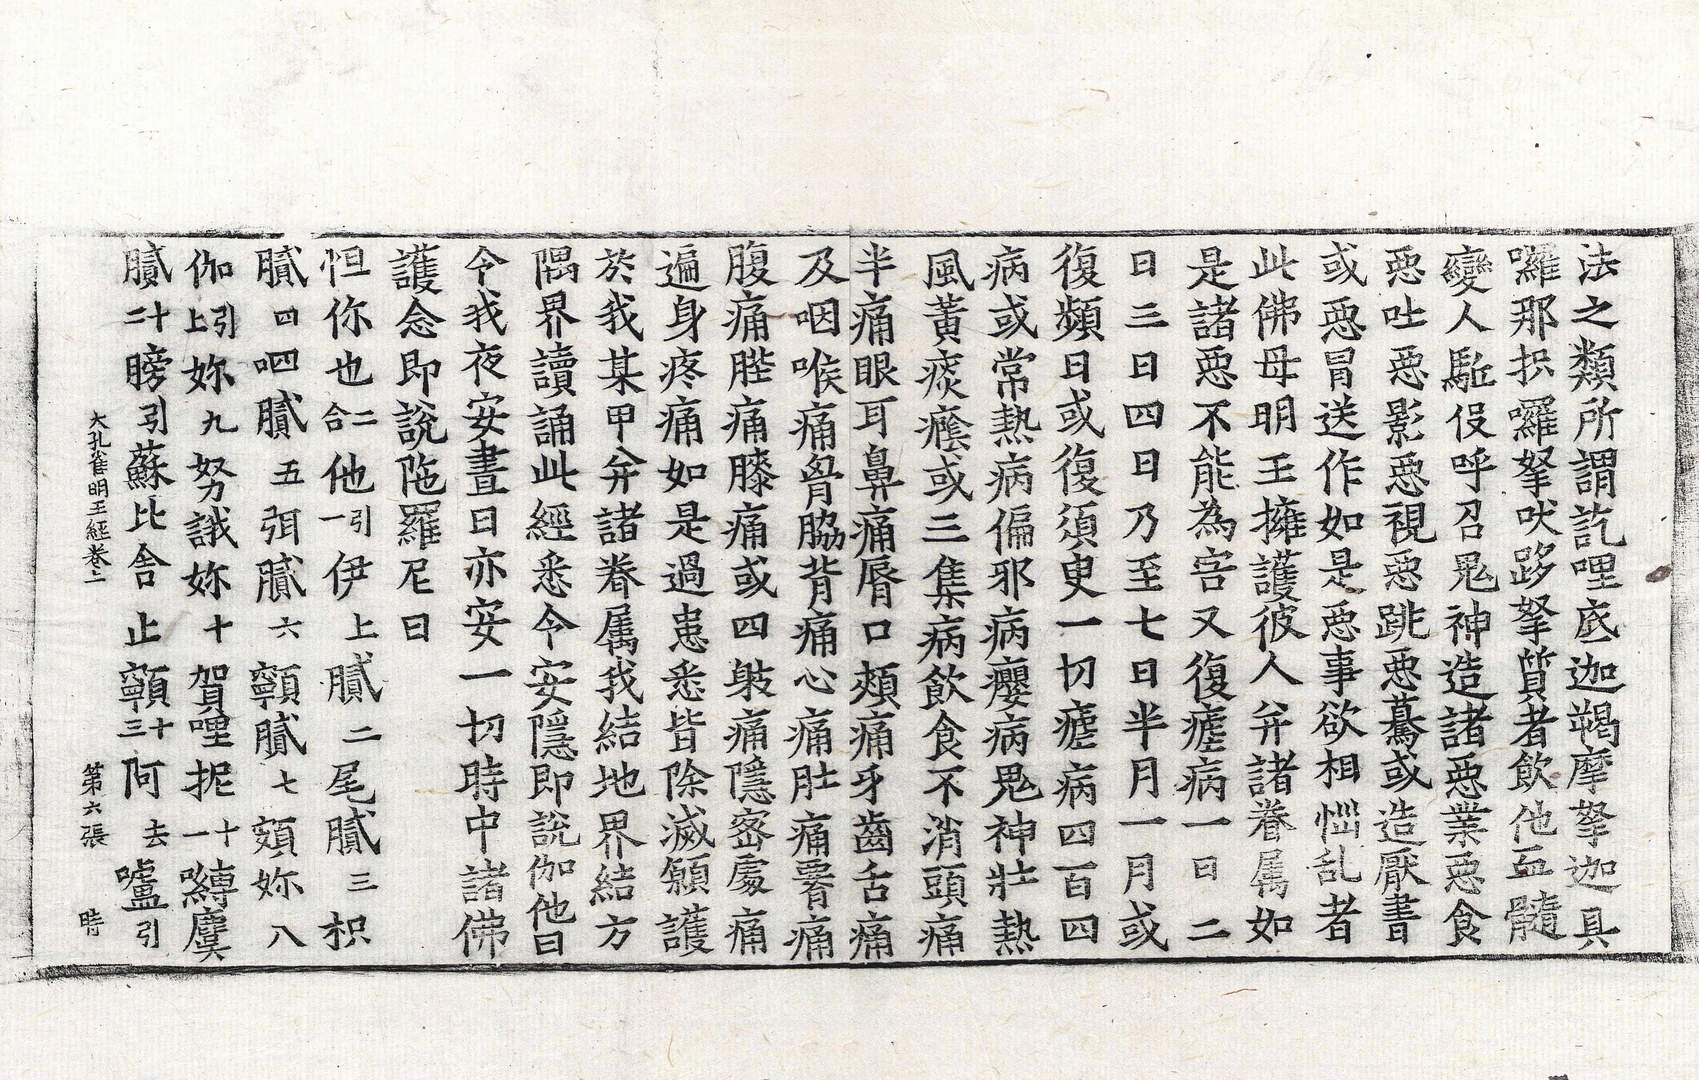 法之類所謂訖哩底迦羯摩拏迦具
囉那枳囉拏吠跢拏質者飲他血髓
變人駈役呼召鬼神造諸惡業惡食
惡吐惡影惡視惡跳惡驀或造厭書
或惡冒送作如是惡事欲相惱乱者
此佛母明王擁護彼人并諸眷属如
是諸惡不能為害又復瘧病一日二
日三日四日乃至七日半月一月或
復頻日或復須臾一切瘧病四百四
病或常熱病偏邪病癭病鬼神壯熱
風黃痰癊或三集病飲食不消頭痛
半痛眼耳鼻痛脣口頰痛牙齒舌痛
及咽喉痛胷脇背痛心痛肚痛䏶痛
腹痛䏶痛膝痛或四䏶痛隱宻處痛
遍身疼痛如是過患悉皆除滅願護
於我某甲并諸眷属我結地界結方
隅界讀誦此經悉令安隱即說伽他曰
令我夜安晝日亦安一切時中諸佛
護念即說陁羅尼曰
怛你也二合他引一伊上膩二尾膩三枳
膩四呬膩五弭膩六顊膩七頞妳八
伽引上妳九努誐妳十賀哩抳十一嚩虞
膩十二髈引蘇比舍止顊十三阿去嚧引
大孔雀明王經卷上 第六張 時